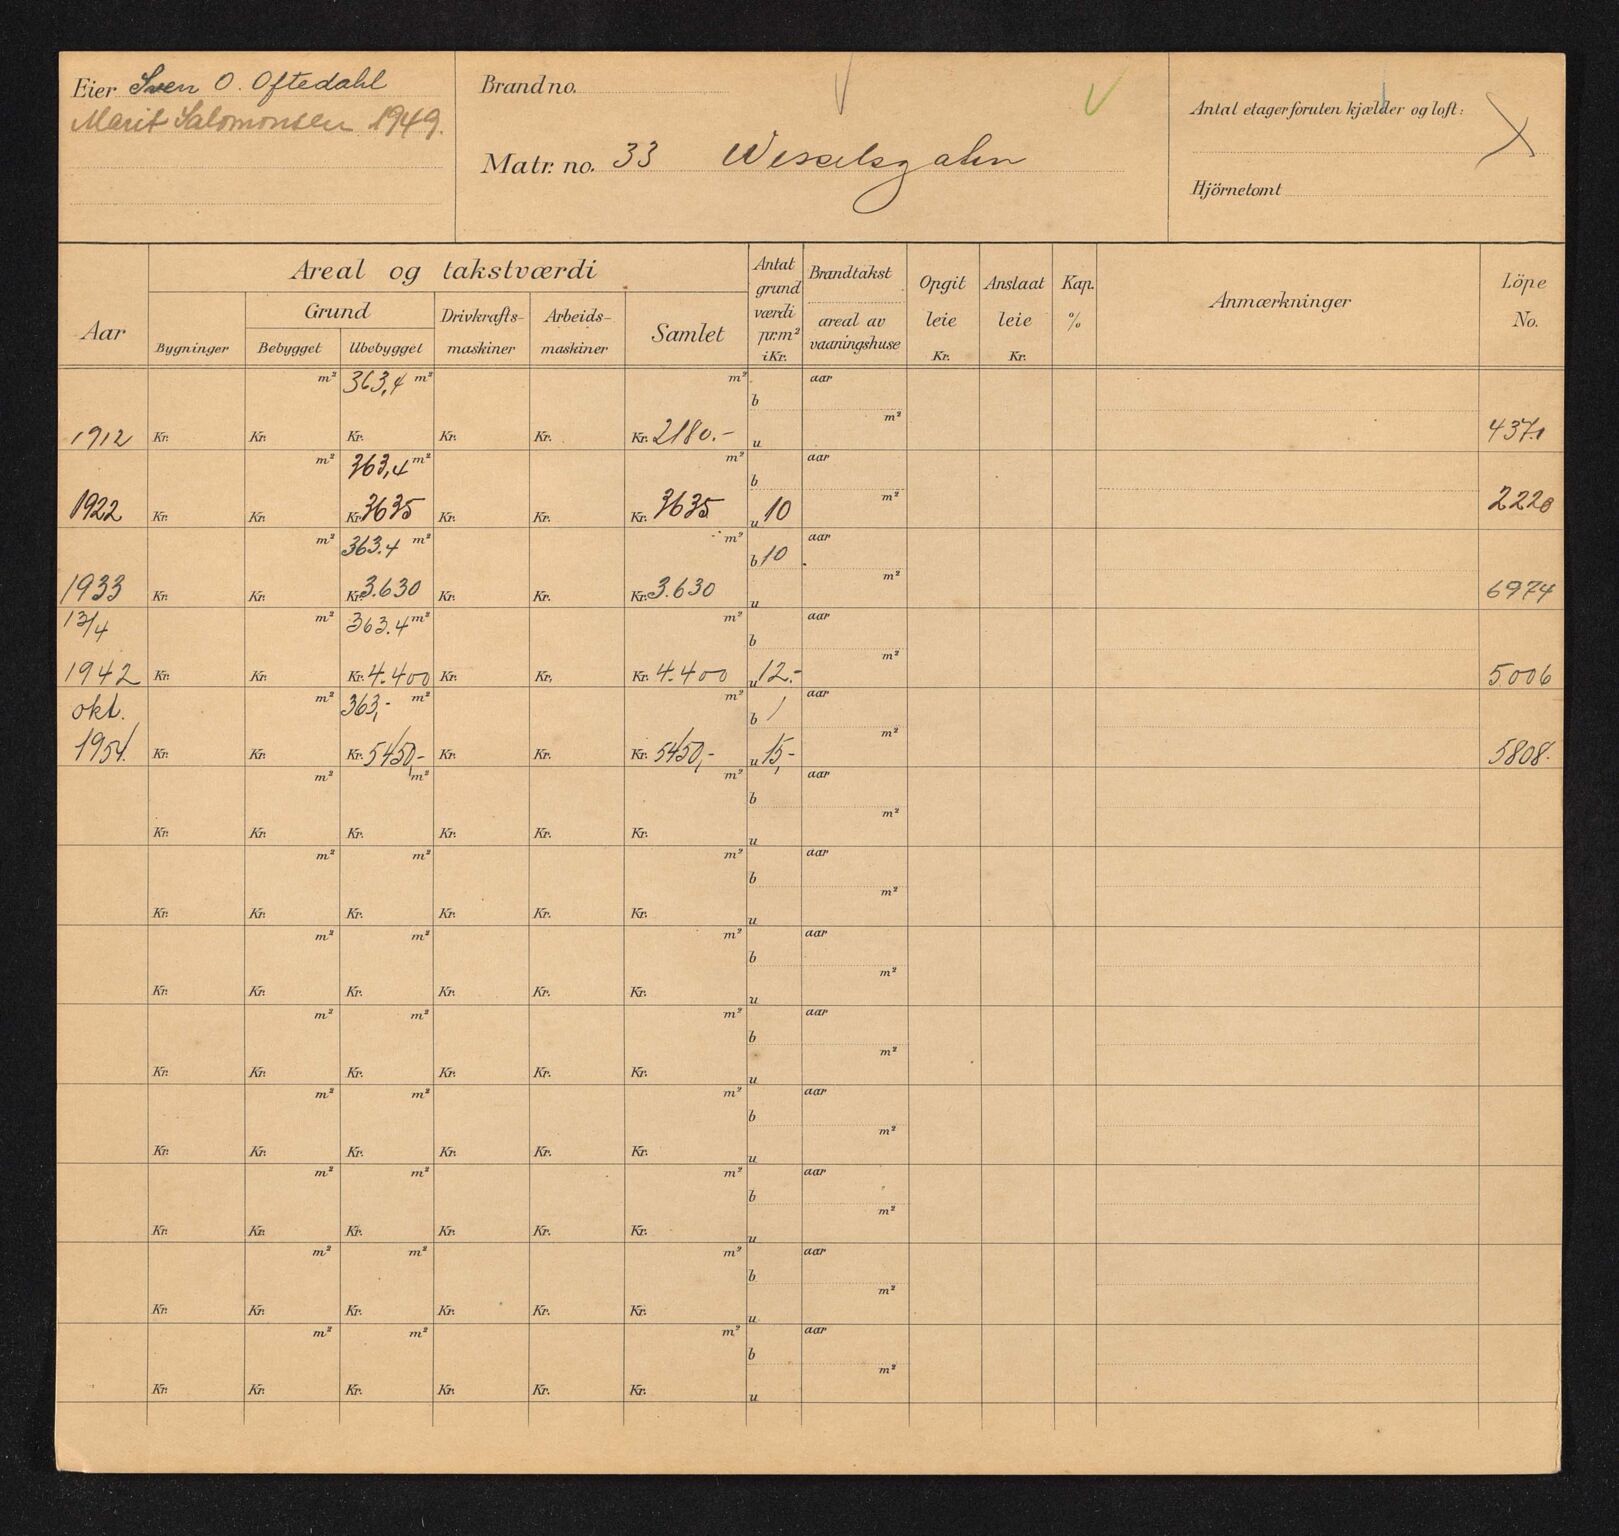 Eier Sven O. Oftedahl
Marit Salomonsen 1949.
Brand no.
Matr. no. 33 Wesselsgaten
Antal etager foruten kjælder og loft:
Hjörnetomt
Aar
Areal og takstværdi
Grund
Bygninger Bebygget Ubebygget
Drivkrafts-
maskiner
Arbeids-
maskiner
Samlet
Antat
grund
værdi
pr. m²
i Kr.
Brandtakst
areal av
vaaningshuse
Opgit
leie
Kr.
Anslaat
leie
Kr.
Kap.
%
Anmærkninger
Löpe
No.
m² 363,4 m² m² aar
b
m²
1912 Kr. Kr. Kr. Kr. Kr. Kr. 2180.- u 4371
m² 363,4 m² m² aar
b
m²
1922 Kr. Kr. Kr. 3635 Kr. Kr. Kr. 3635 u 10 2220
m² 363.4 m² m² aar
b 10
m²
1933 Kr. Kr. Kr. 3.630 Kr. Kr. Kr. 3.630 u 6974
13/4 m² 363.4 m² m² aar
b
m²
1942 Kr. Kr. Kr. 4.400 Kr. Kr. Kr. 4.400 u 12.- 5006
okt. m² 363,- m² m² aar
b /
m²
1954. Kr. Kr. Kr. 5450,- Kr. Kr. Kr. 5450,- u 15,- 5808.
m² m² m² aar
b
m²
Kr. Kr. Kr. Kr. Kr. Kr. u
m² m² m² aar
b
m²
Kr. Kr. Kr. Kr. Kr. Kr. u
m² m² m² aar
b
m²
Kr. Kr. Kr. Kr. Kr. Kr. u
m² m² m² aar
b
m²
Kr. Kr. Kr. Kr. Kr. Kr. u
m² m² m² aar
b
m²
Kr. Kr. Kr. Kr. Kr. Kr. u
m² m² m² aar
b
m²
Kr. Kr. Kr. Kr. Kr. Kr. u
m² m² m² aar
b
m²
Kr. Kr. Kr. Kr. Kr. Kr. u
m² m² m² aar
b
m²
Kr. Kr. Kr. Kr. Kr. Kr. u